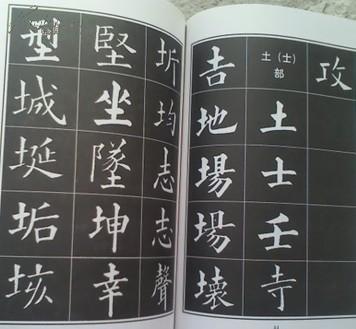 攻
土（士）
部
土
士
壬
寺
吉
地
場
場
壞
圻
均
志
志
聲
堅
坐
墜
坤
幸
型
城
埏
垢
垓